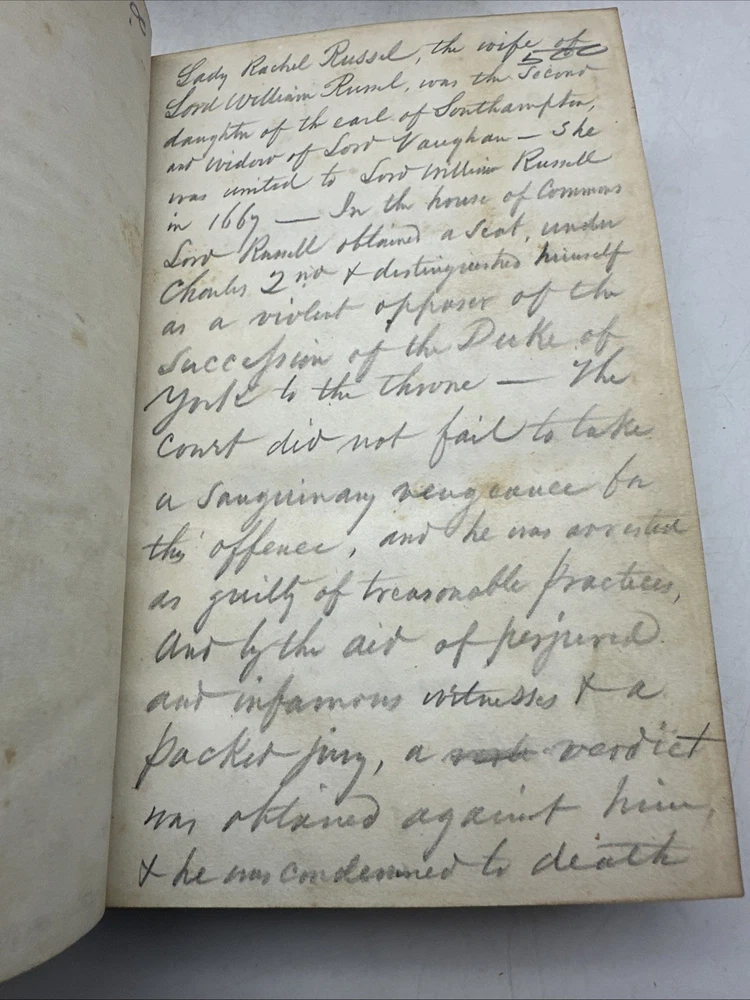 Lady Rachel Russel, the wife of
500
Lord William Russel, was the Second
daughter of the earl of Southampton,
and widow of Lord Vaughan — She
was united to Lord William Russell
in 1667 — In the house of Commons
Lord Russell obtained a Seat, under
Charles 2nd & distinguished himself
as a violent opposer of the
Succession of the Duke of
York to the throne — The
Court did not fail to take
a Sanguinary vengeance for
this offence, and he was arrested
as guilty of treasonable practices,
And by the aid of perjured
and infamous witnesses & a
packed jury, a verdict
was obtained against him,
& he was condemned to death